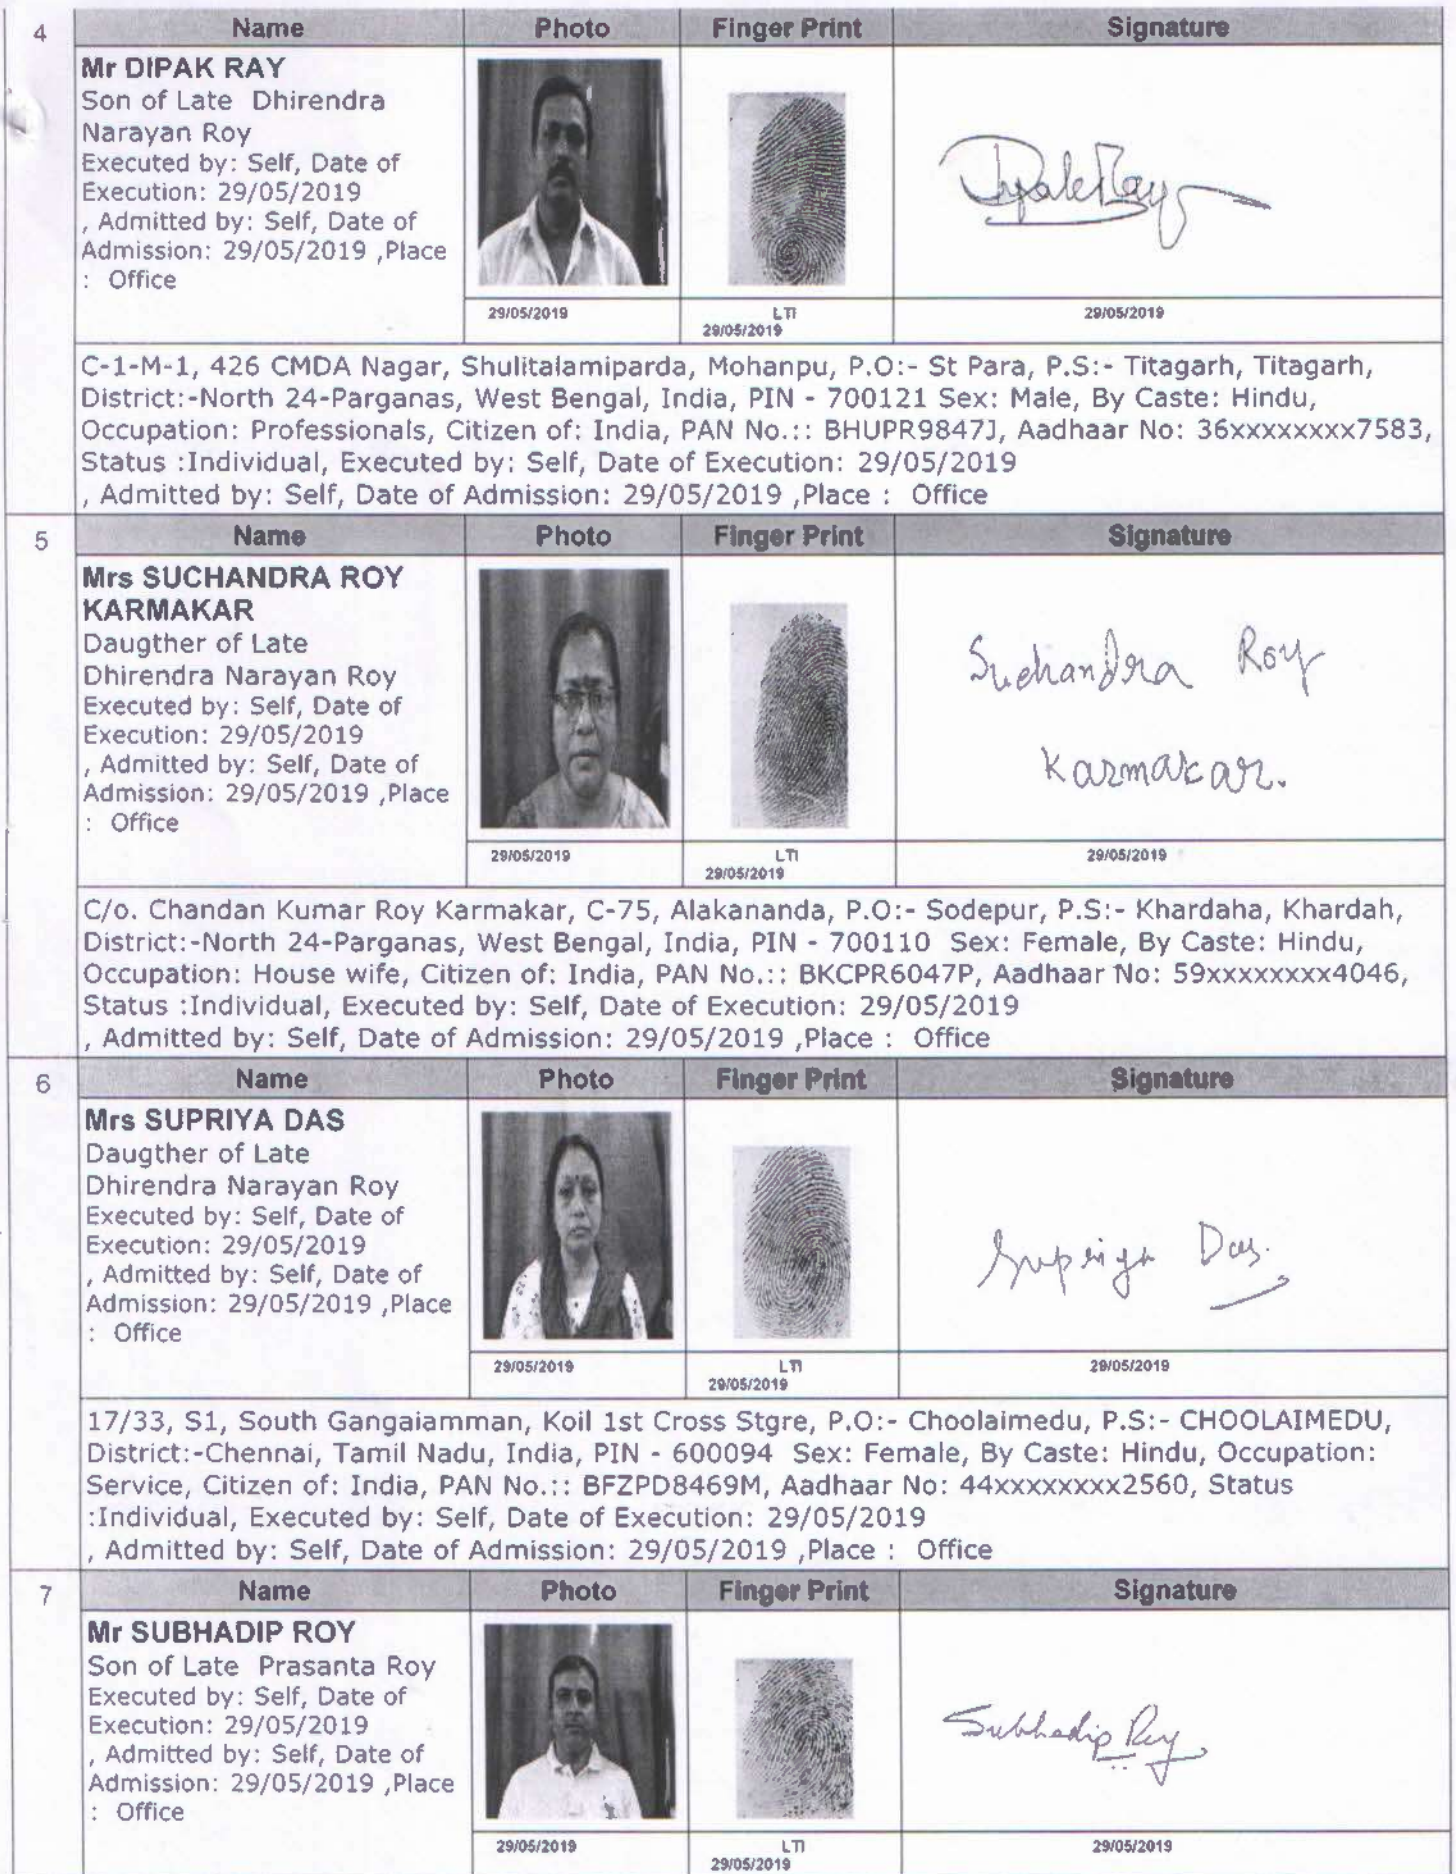 4
Name Photo Finger Print Signature
Mr DIPAK RAY
Son of Late Dhirendra
Narayan Roy
Executed by: Self, Date of
Execution: 29/05/2019
, Admitted by: Self, Date of
Admission: 29/05/2019 ,Place
: Office
Dipak Ray
29/05/2019 LTI 29/05/2019
29/05/2019
C-1-M-1, 426 CMDA Nagar, Shulitalamiparda, Mohanpu, P.O:- St Para, P.S:- Titagarh, Titagarh,
District:-North 24-Parganas, West Bengal, India, PIN - 700121 Sex: Male, By Caste: Hindu,
Occupation: Professionals, Citizen of: India, PAN No.:: BHUPR9847J, Aadhaar No: 36xxxxxxxx7583,
Status :Individual, Executed by: Self, Date of Execution: 29/05/2019
, Admitted by: Self, Date of Admission: 29/05/2019 ,Place : Office
5
Name Photo Finger Print Signature
Mrs SUCHANDRA ROY
KARMAKAR
Daugther of Late
Dhirendra Narayan Roy
Executed by: Self, Date of
Execution: 29/05/2019
, Admitted by: Self, Date of
Admission: 29/05/2019 ,Place
: Office
Suchandra Roy
Karmakar.
29/05/2019 LTI 29/05/2019
29/05/2019
C/o. Chandan Kumar Roy Karmakar, C-75, Alakananda, P.O:- Sodepur, P.S:- Khardaha, Khardah,
District:-North 24-Parganas, West Bengal, India, PIN - 700110 Sex: Female, By Caste: Hindu,
Occupation: House wife, Citizen of: India, PAN No.:: BKCPR6047P, Aadhaar No: 59xxxxxxxx4046,
Status :Individual, Executed by: Self, Date of Execution: 29/05/2019
, Admitted by: Self, Date of Admission: 29/05/2019 ,Place : Office
6
Name Photo Finger Print Signature
Mrs SUPRIYA DAS
Daugther of Late
Dhirendra Narayan Roy
Executed by: Self, Date of
Execution: 29/05/2019
, Admitted by: Self, Date of
Admission: 29/05/2019 ,Place
: Office
Supriya Das.
29/05/2019 LTI 29/05/2019
29/05/2019
17/33, S1, South Gangaiamman, Koil 1st Cross Stgre, P.O:- Choolaimedu, P.S:- CHOOLAIMEDU,
District:-Chennai, Tamil Nadu, India, PIN - 600094 Sex: Female, By Caste: Hindu, Occupation:
Service, Citizen of: India, PAN No.:: BFZPD8469M, Aadhaar No: 44xxxxxxxx2560, Status
:Individual, Executed by: Self, Date of Execution: 29/05/2019
, Admitted by: Self, Date of Admission: 29/05/2019 ,Place : Office
7
Name Photo Finger Print Signature
Mr SUBHADIP ROY
Son of Late Prasanta Roy
Executed by: Self, Date of
Execution: 29/05/2019
, Admitted by: Self, Date of
Admission: 29/05/2019 ,Place
: Office
Subhadip Roy
29/05/2019 LTI 29/05/2019
29/05/2019